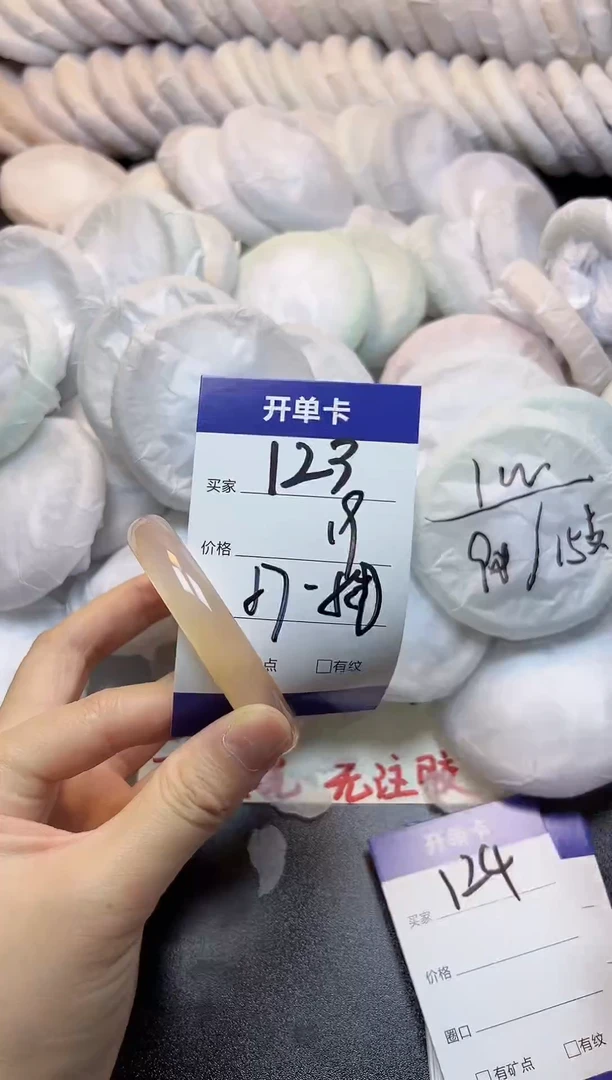 开单卡
买家 123
价格 19
57-
点 □有纹
1w
9 / 15支
无注胶
开单卡
买家 124
价格
圈口
□有矿点 □有纹